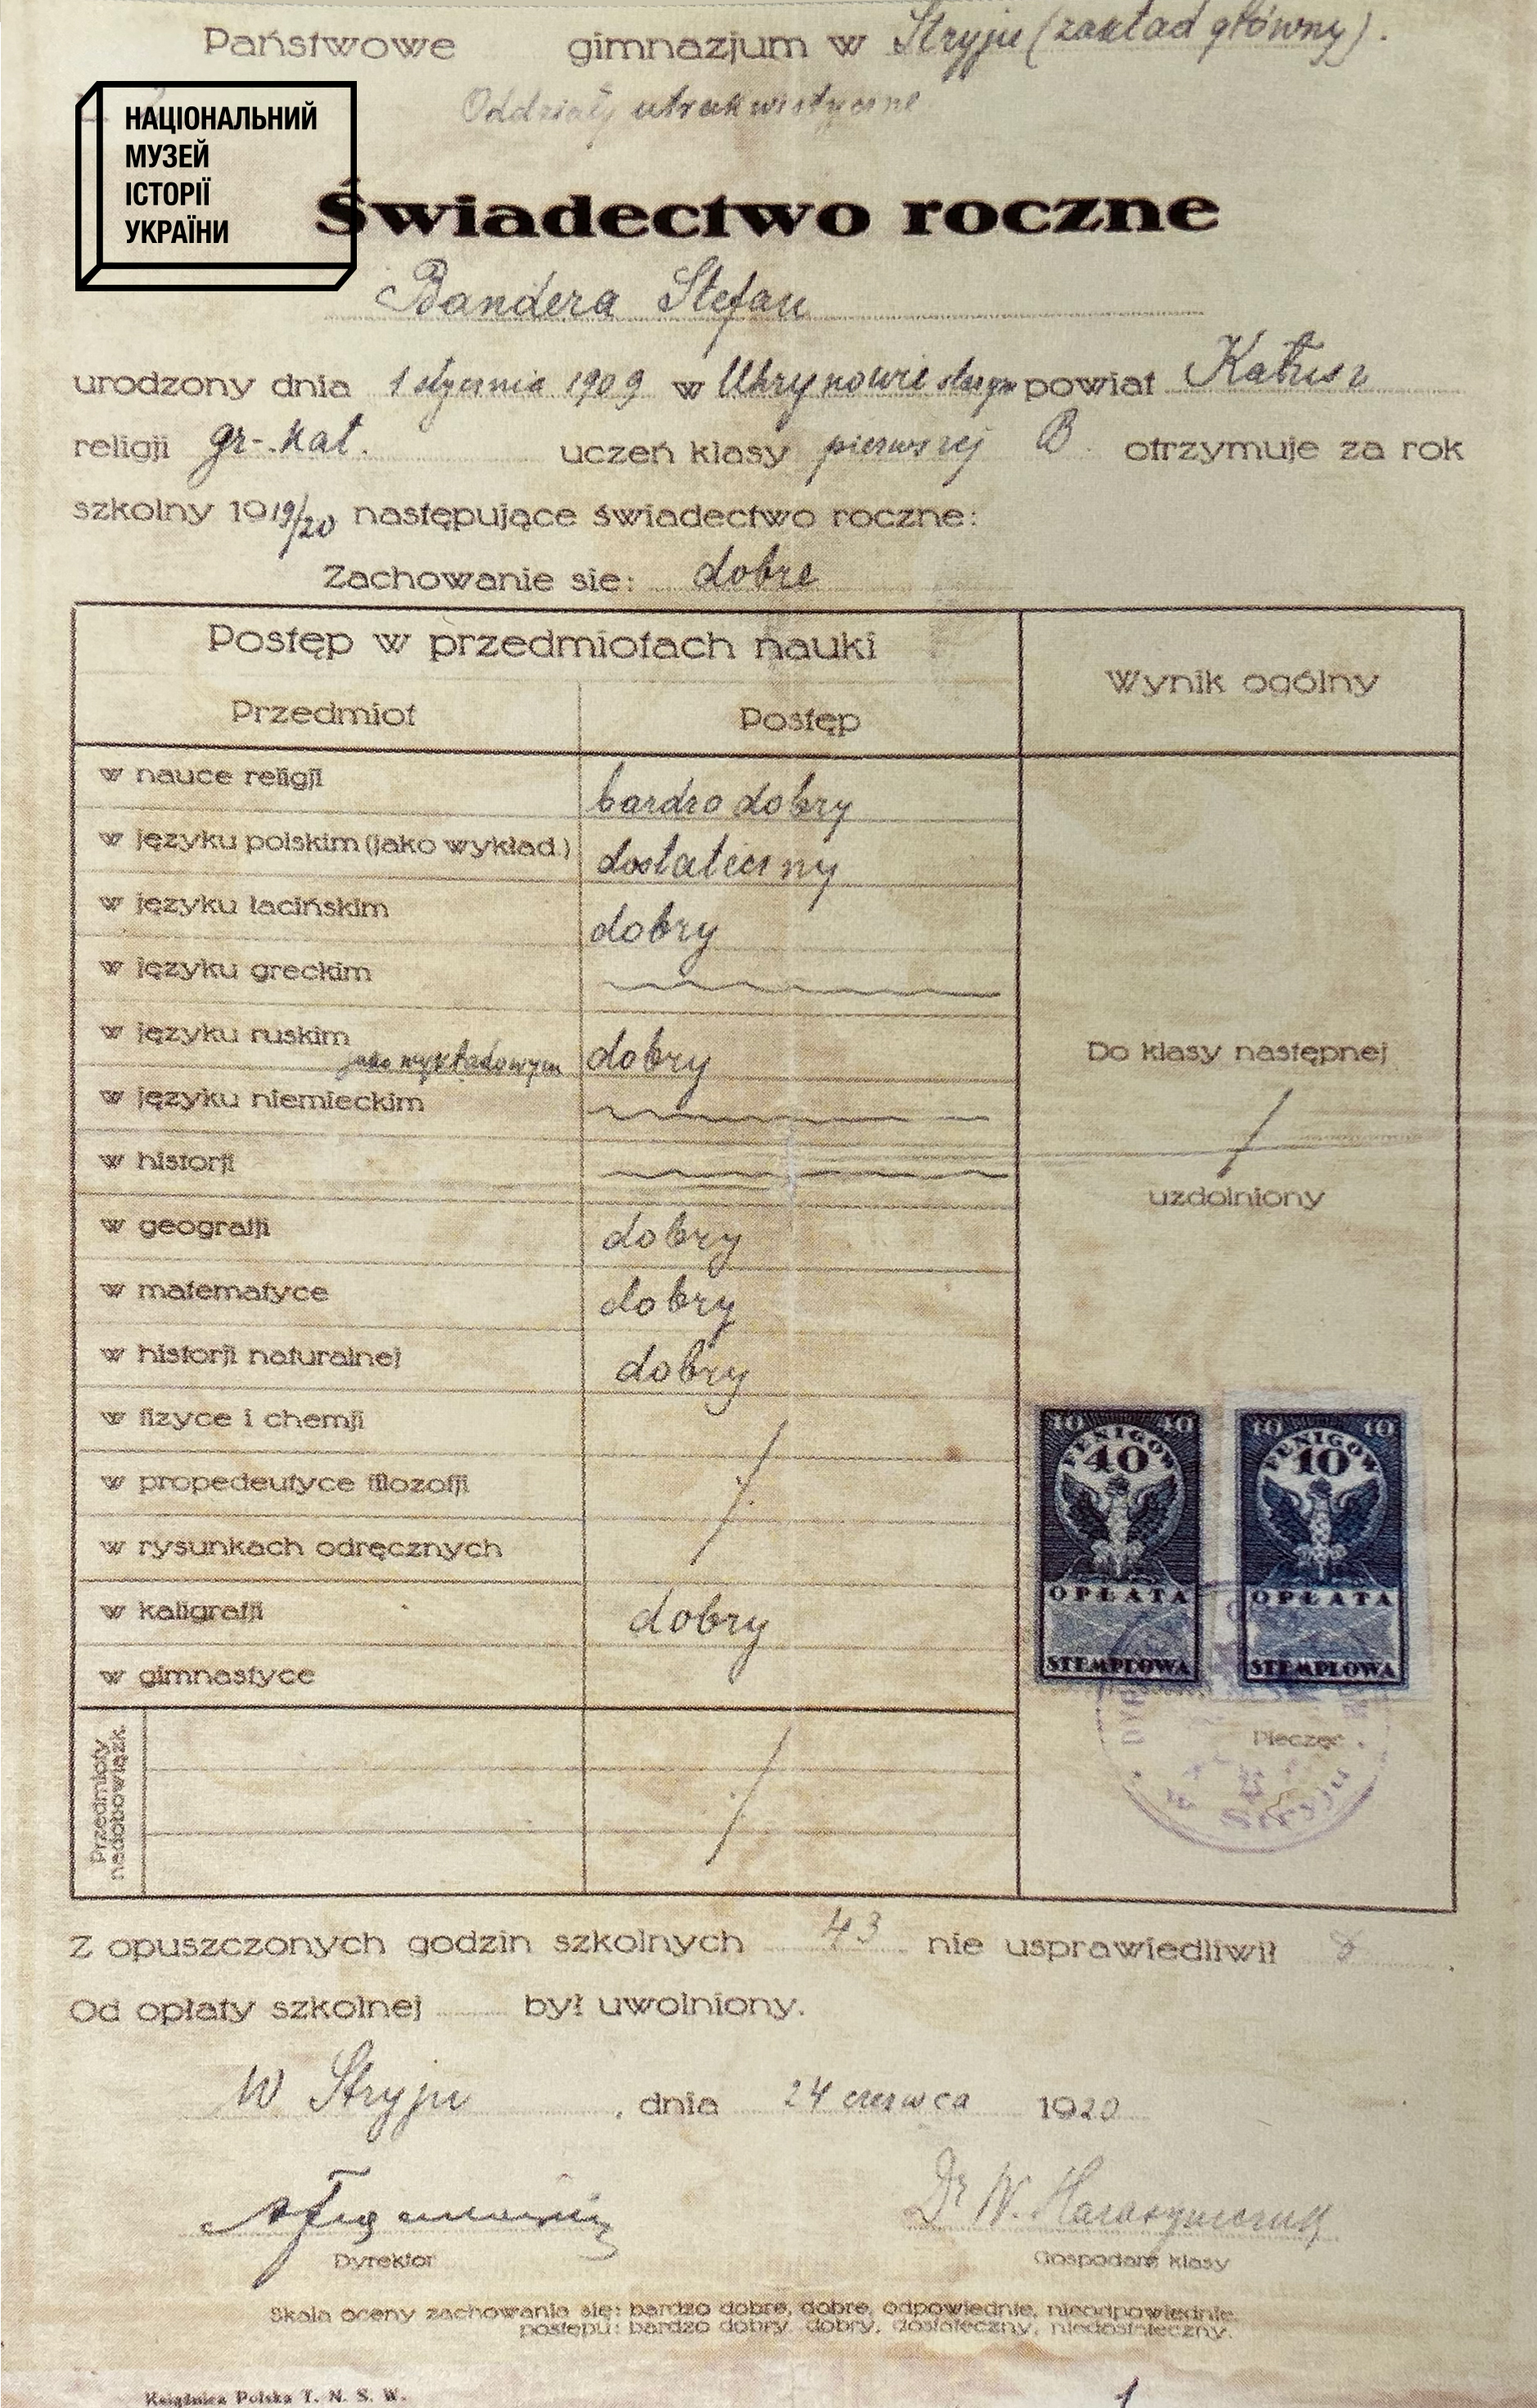 Państwowe gimnazjum w Stryju (zakład główny).
Oddziały utrakwistyczne
НАЦІОНАЛЬНИЙ
МУЗЕЙ
ІСТОРІЇ
УКРАЇНИ
Świadectwo roczne
Bandera Stefan
urodzony dnia 1 stycznia 1909 w Uhrynowie starym powiat Kałusz
religji gr-.kat. uczeń klasy pierwszej B otrzymuje za rok
szkolny 1919/20 następujące świadectwo roczne:
Zachowanie sie: dobre
Postęp w przedmiotach nauki
Wynik ogólny
Przedmiot Postęp
w nauce religji bardzo dobry
w języku polskim (jako wykład.) dostateczny
w języku łacińskim dobry
w języku greckim
w języku ruskim jako wykładowym dobry
Do klasy następnej
w języku niemieckim
w historji
uzdolniony
w geografji dobry
w matematyce dobry
w historji naturalnej dobry
w fizyce i chemji
w propedeutyce filozofji
w rysunkach odręcznych
w kaligrafji dobry
w gimnastyce
40 40 10 10
FENIGÓW FENIGÓW
40 10
OPŁATA OPŁATA
STEMPLOWA STEMPLOWA
Pieczęć
w Stryju
Przedmioty
nadobowiązk.
Z opuszczonych godzin szkolnych 43 nie usprawiedliwił 8
Od opłaty szkolnej był uwolniony.
W Stryju, dnia 24 czerwca 1920
Dr W.
Dyrektor Gospodarz klasy
Skala oceny zachowania się: bardzo dobre, dobre, odpowiednie, nieodpowiednie.
postępu: bardzo dobry, dobry, dostateczny, niedostateczny.
Książnica Polska T. N. S. W.
1